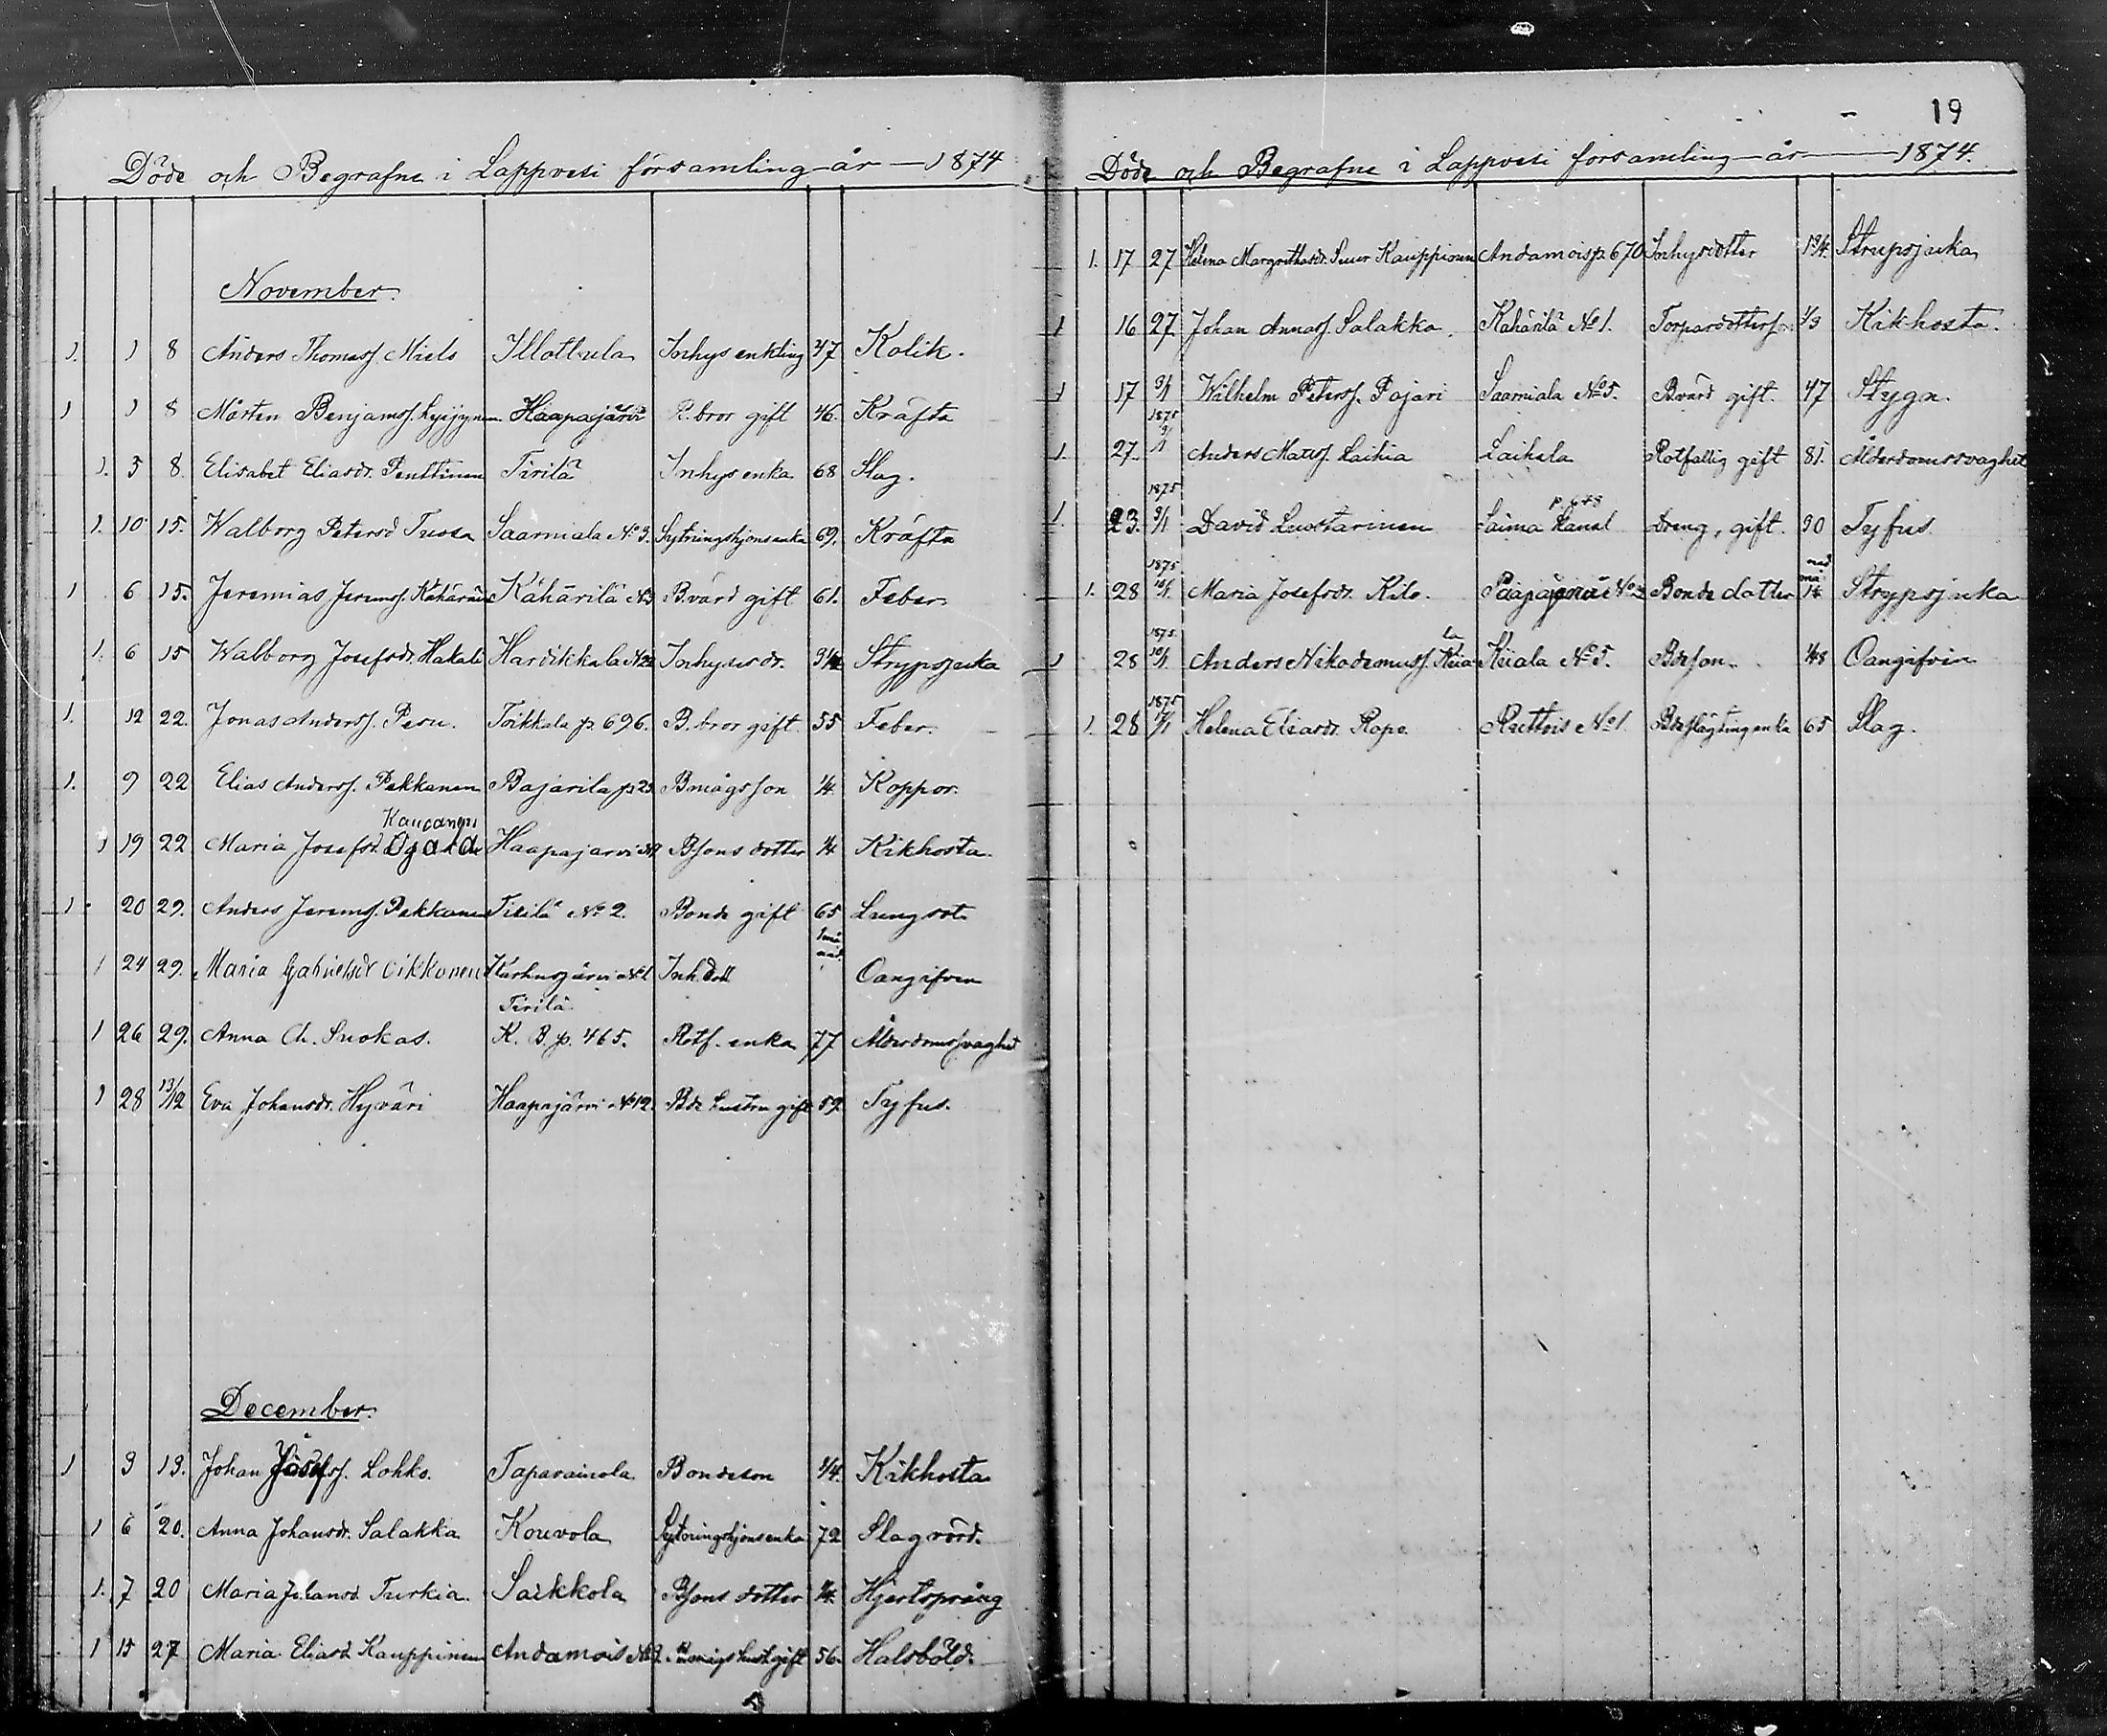 Döde och Begrafne i Lappvesi församling år — 1874
November.
1. 1 8 Anders Thomass. Miels Illottula Inhys enkling 47 Kolik.
1 1 8 Mårten Benjamss. Haapajärvi B. bror gift 46. Kräfta
1. 5 8. Elisabet Eliasdr. Penttinen Tirilä Inhys enka 68 Slag.
1. 10 15. Walborg Petersd Tuosa Saarniala No 3. Sytningshjons enka 69. Kräfta
1 6 15. Jeremias Jeremss. Kähärilä No B.värd gift 61. Feber
1. 6 15 Walborg Josefsdr. Hakali Hardikkala Inhyses dr. 3/4 Strypsjuka
1. 12 22. Jonas Anderss. Peru. Toikkala p. 696. B. bror gift. 55 Feber.
1. 9 22 Elias Anderss. Pekkanen Bajarila p 23 Bmågsson 1/4 Koppor.
Kaucanen
1 19 22 Maria Josefsd. Haapajärvi Bsons dotter 1/4 Kikhosta.
1. 20 29. Anders Jeremss. Pekkanen Tirilä No 2. Bonde gift 65 Lungsot
1 24 29. Maria Gabrielsdr Oikkonen Karhusjärvi No 1 Inh. dott Oangifven
Tirilä
1 26 29. Anna Ch. Suokas. K. B. p. 465. Rotf. enka 77 Ålderdomssvaghet
1 28 13/12 Eva Johansdr. Hyväri Haapajärvi No 12. Bde hustru gift 59. Tyfus.
December.
1 3 13. Johan Josefss. Lohko. Taparainola Bondeson 1/4. Kikhosta
1 6 20. Anna Johansdr. Salakka Kouvola Sytningshjons enka 72 Slagrörd.
1. 7 20 Maria Johansd. Turkia. Saikkola Bsons dotter 1/4. Hjertsprång
1 15 27 Maria Eliasd. Kauppinen Andamois No 2. gift 56. Halsböld.
19
Döde och Begrafne i Lappvesi församling år — 1874.
1. 17 27 Helena Margrethasdr. Kauppinen Andamois p. 670 Inhysdotter 1 3/4. Strupsjuka
1 16 27 Johan Annass. Salakka. Kähärilä No 1. Torpardotterson 1/3 Kikhosta.
1 17 3/1 Wilhelm Peterss. Pajari Saarniala No 5. Bvärd gift. 47 Stygn.
1875
1. 27 3/1 Anders Matss. Laihia Laihela Rotfallig gift 81. Ålderdomssvaghet
1875 p. 648
1 23. 9/1 David Luostarinen Saima Kanal Dreng, gift. 30 Tyfus
1875
1. 28 10/1 Maria Josefsdr. Kilo. No Bonde dotter Strypsjuka
1875. la
1 28 10/1 Anders Nikodemuss. Kiia Kiiala No 5. Bdeson. 1/48 Oangifven
1875
1. 28 17/1 Helena Eliasdr. Ropo. Ruttois No 1. Bdeslägting enka 65 Slag.